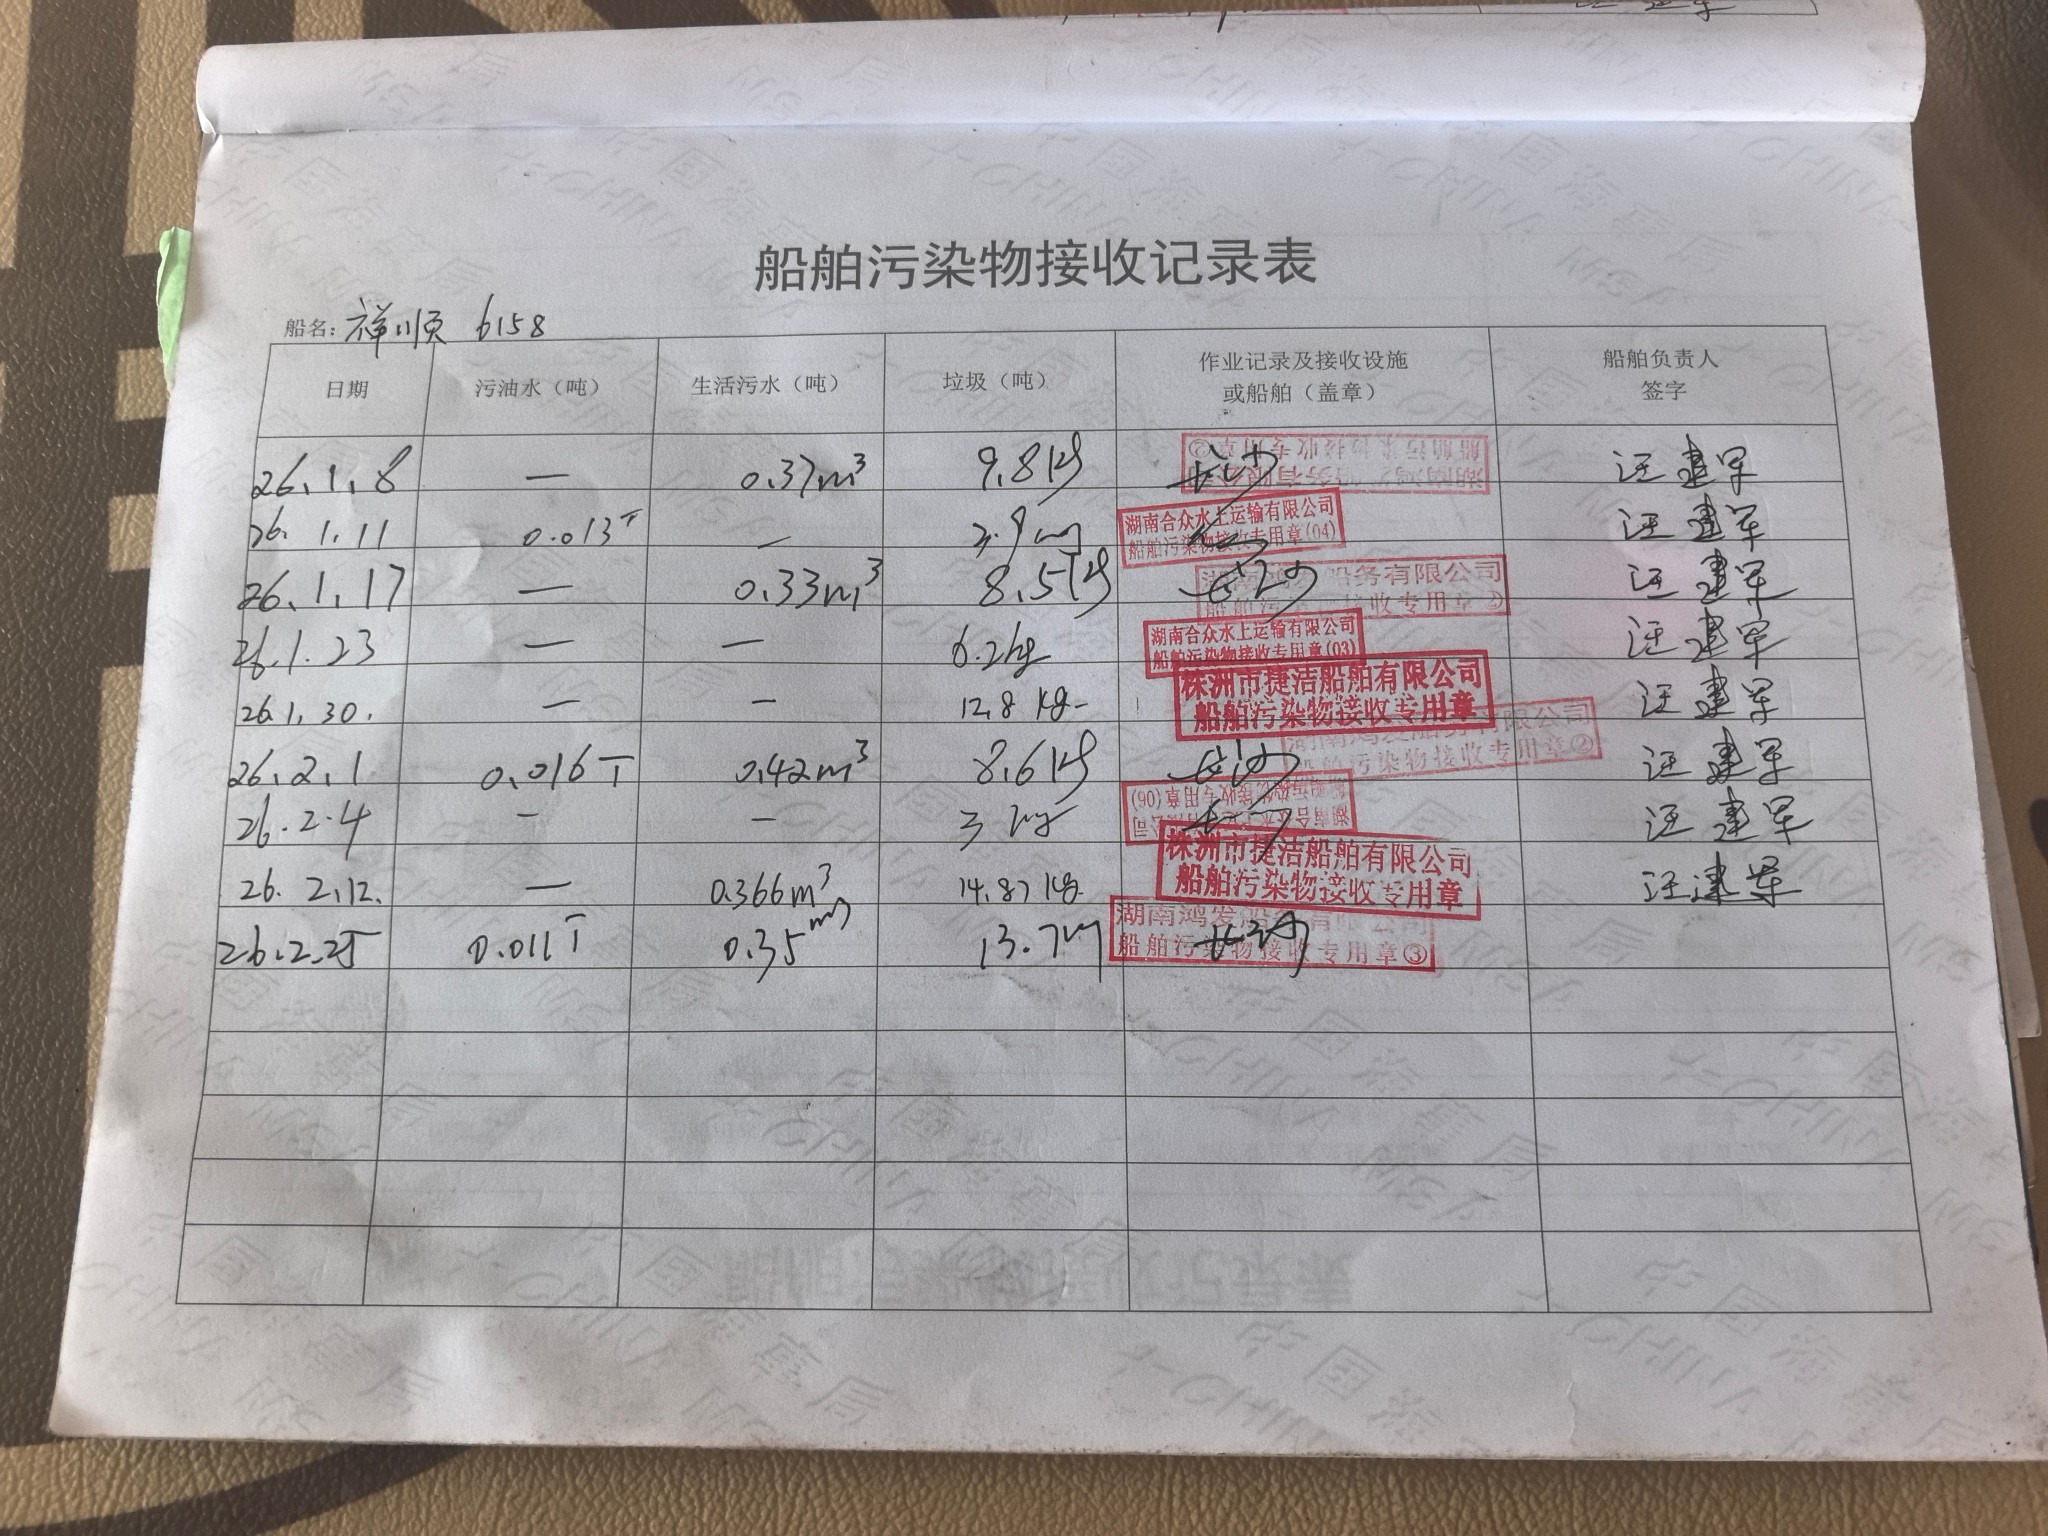 船舶污染物接收记录表
船名: 祥顺 6158
日期 污油水（吨） 生活污水（吨） 垃圾（吨） 作业记录及接收设施或船舶（盖章） 船舶负责人签字
26.1.8 — 0.37m³ 9.8kg 长沙 汪建军
26.1.11 0.013T — 湖南合众水上运输有限公司 船舶污染物接收专用章(04) 汪建军
26.1.17 — 0.33m³ 8.5kg 长沙 船务有限公司 船舶污染物接收专用章 汪建军
26.1.23 — — 6.2kg 湖南合众水上运输有限公司 船舶污染物接收专用章(03) 汪建军
26.1.30. — — 12.8kg 株洲市捷洁船舶有限公司 船舶污染物接收专用章 汪建军
26.2.1 0.016T 0.42m³ 8.6kg 长沙 湖南鸿发船务有限公司 船舶污染物接收专用章② 汪建军
26.2.4 - - 3kg 湖南合众水上运输有限公司 船舶污染物接收专用章(06) 汪建军
26.2.12. — 0.366m³ 14.87kg 株洲市捷洁船舶有限公司 船舶污染物接收专用章 汪建军
26.2.25 0.011T 0.35m³ 13.7kg 长沙 湖南鸿发船务有限公司 船舶污染物接收专用章③
中国海事局
CHINA MSA